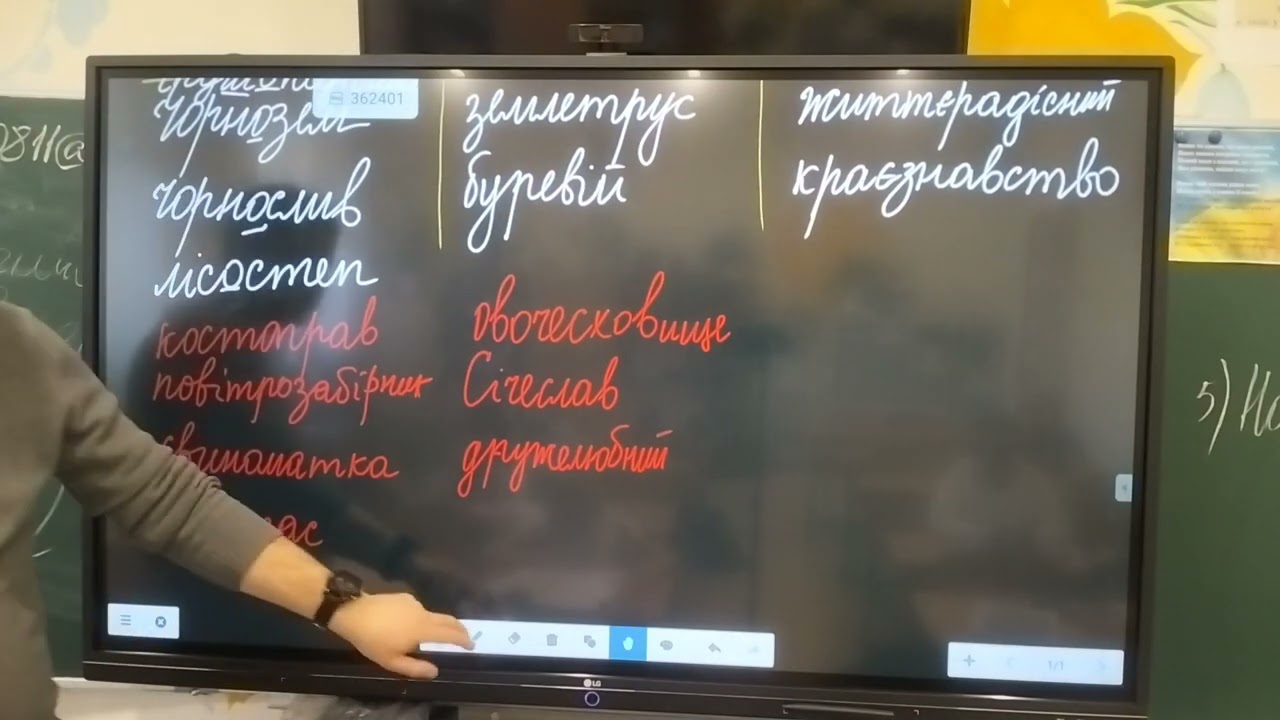 362401
чорнозем
чорнослив
лісостеп
костоправ
повітрозабірник
свиноматка
землетрус
буревій
овочесховище
Січеслав
дружелюбний
життєрадісний
краєзнавство
5) На
1/1
LG